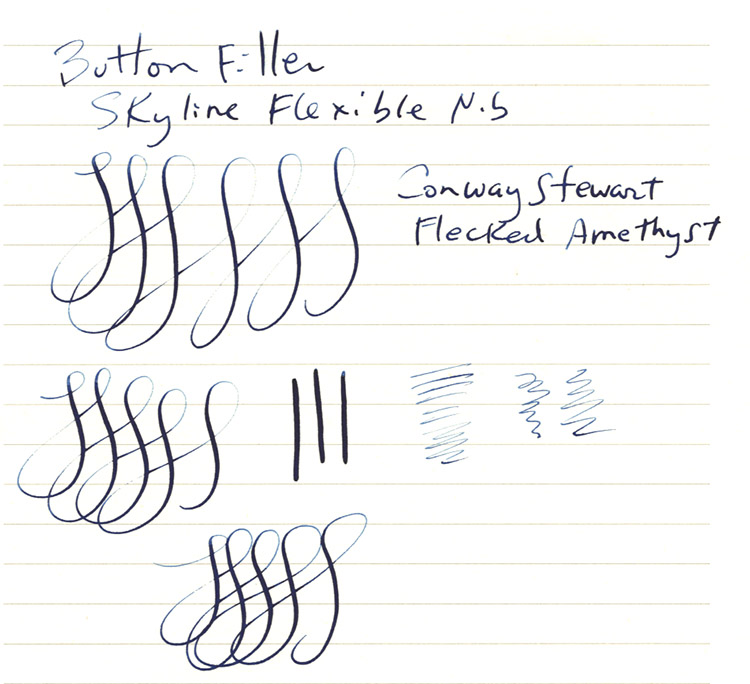 Button Filler
Skyline Flexible Nib
Conway Stewart
Flecked Amethyst